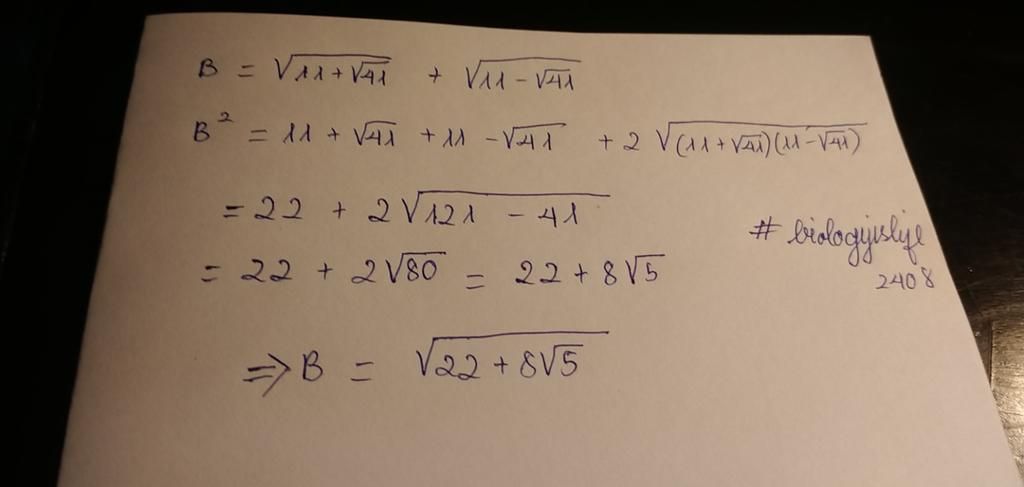 B = √(11 + √41) + √(11 - √41)
B² = 11 + √41 + 11 - √41 + 2 √((11 + √41)(11 - √41))
= 22 + 2√(121 - 41)
= 22 + 2√80 = 22 + 8√5
# biologyislife
2408
⇒ B = √(22 + 8√5)